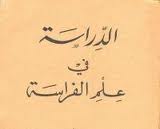 الدِّرَاسَة
في
عِلْمِ الفِرَاسَة